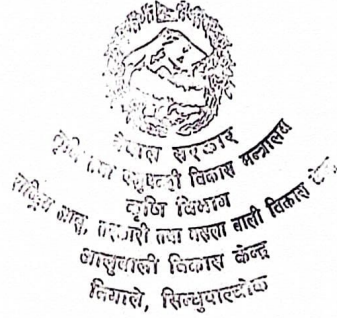 नेपाल सरकार
कृषि तथा पशुपन्छी विकास मन्त्रालय
कृषि विभाग
राष्ट्रिय आलु, तरकारी तथा मसला बाली विकास केन्द्र
आलुबाली विकास केन्द्र
निगाले, सिन्धुपाल्चोक